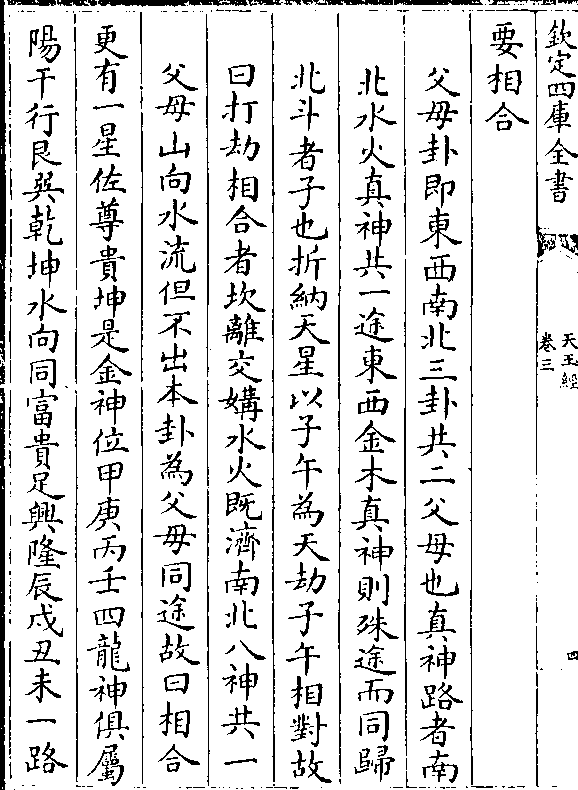 欽定四庫全書
天玉經
卷三
四
要相合
父母卦即東西南北三卦共二父母也真神路者南
北水火真神共一途東西金木真神則殊途而同歸
北斗者子也折納天星以子午為天劫子午相對故
曰打劫相合者坎離交媾水火既濟南北八神共一
父母山向水流但不出本卦為父母同途故曰相合
更有一星佐尊貴坤是金神位甲庚丙壬四龍神俱屬
陽干行艮巽乾坤水向同富貴足興隆辰戌丑未一路